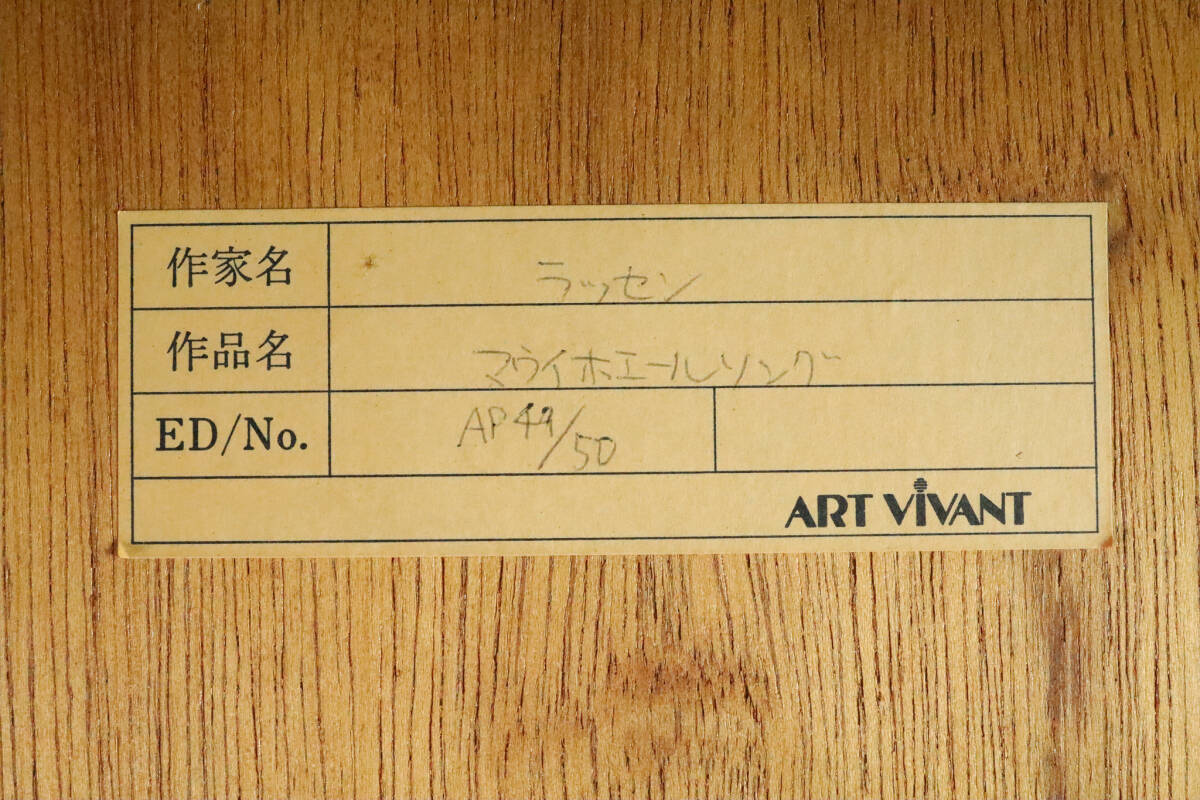 作家名 ラッセン
作品名 マウイホエールソング
ED/No. AP 49/50
ART VIVANT